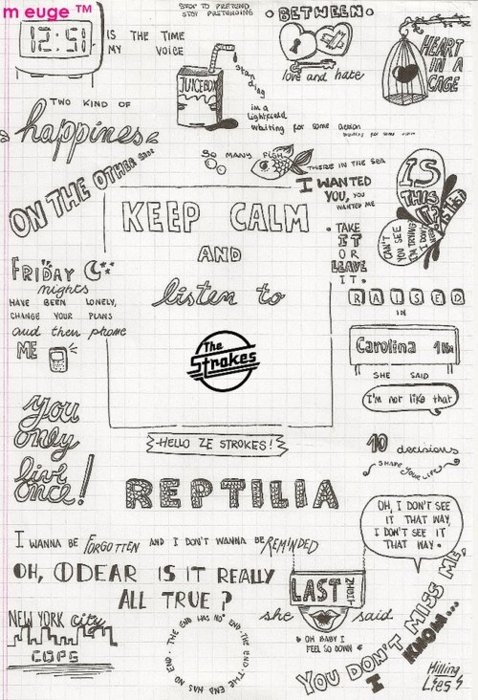 m euge ™
12:51
IS THE TIME
MY VOICE
STOP TO PRETEND
STOP PRETENDING
• BETWEEN •
love and hate
HEART
IN A
CAGE
JUICEBOX
standing
in a
lightfield
waiting for some action
waiting for some action
TWO KIND OF
happines
ON THE OTHER SIDE
SO MANY FISH
THERE IN THE SEA
I WANTED
YOU, YOU
WANTED ME
• TAKE
IT
OR
LEAVE
IT.
IS
THIS
IT
CAN'T
YOU SEE
I'M TRYING
I DON'T
KEEP CALM
AND
listen to
The
Strokes
FRIDAY
nights
HAVE BEEN LONELY,
CHANGE YOUR PLANS
and then phone
ME
RAISED
IN
Carolina
SHE SAID
I'm not like that
you
only
live
once!
-HELLO ZE STROKES!-
10 decisions
SHAPE YOUR LIFE
REPTILIA
OH, I DON'T SEE
IT THAT WAY,
I DON'T SEE IT
THAT WAY.
I WANNA BE FORGOTTEN AND I DON'T WANNA BE REMINDED
OH, DEAR IS IT REALLY
ALL TRUE?
LAST NITE
she said
OH BABY I
FEEL SO DOWN
NEW YORK city
COPS
THE END HAS NO END. THE END HAS NO END.
YOU DON'T MISS ME,
I KNOW...
Killing
Lies